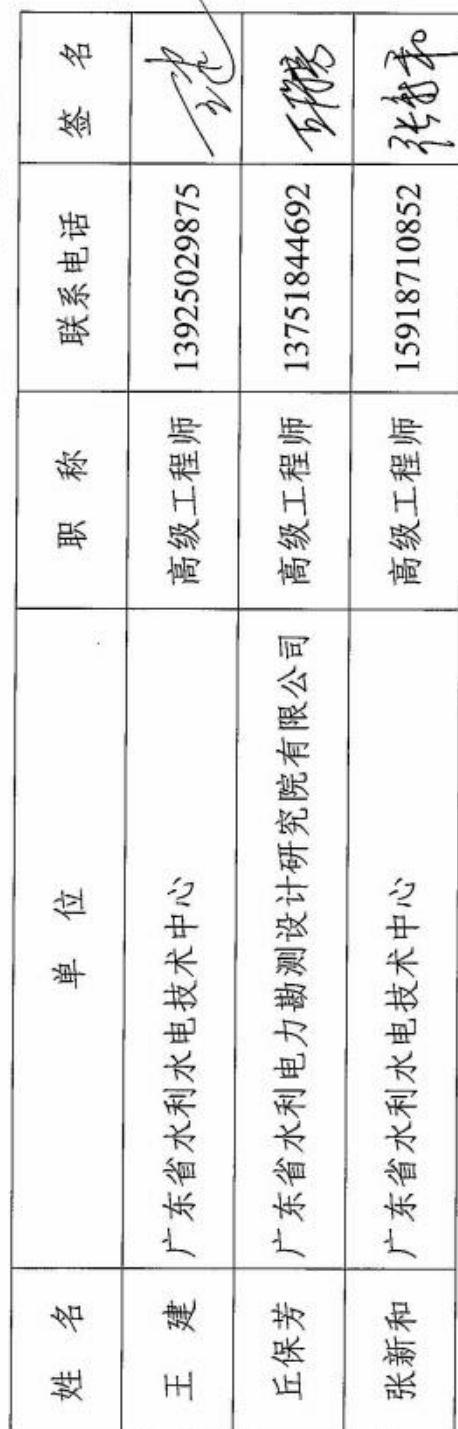 姓 名 单 位 职 称 联系电话 签 名
王 建 广东省水利水电技术中心 高级工程师 13925029875 王建
丘保芳 广东省水利电力勘测设计研究院有限公司 高级工程师 13751844692
张新和 广东省水利水电技术中心 高级工程师 15918710852 张新和